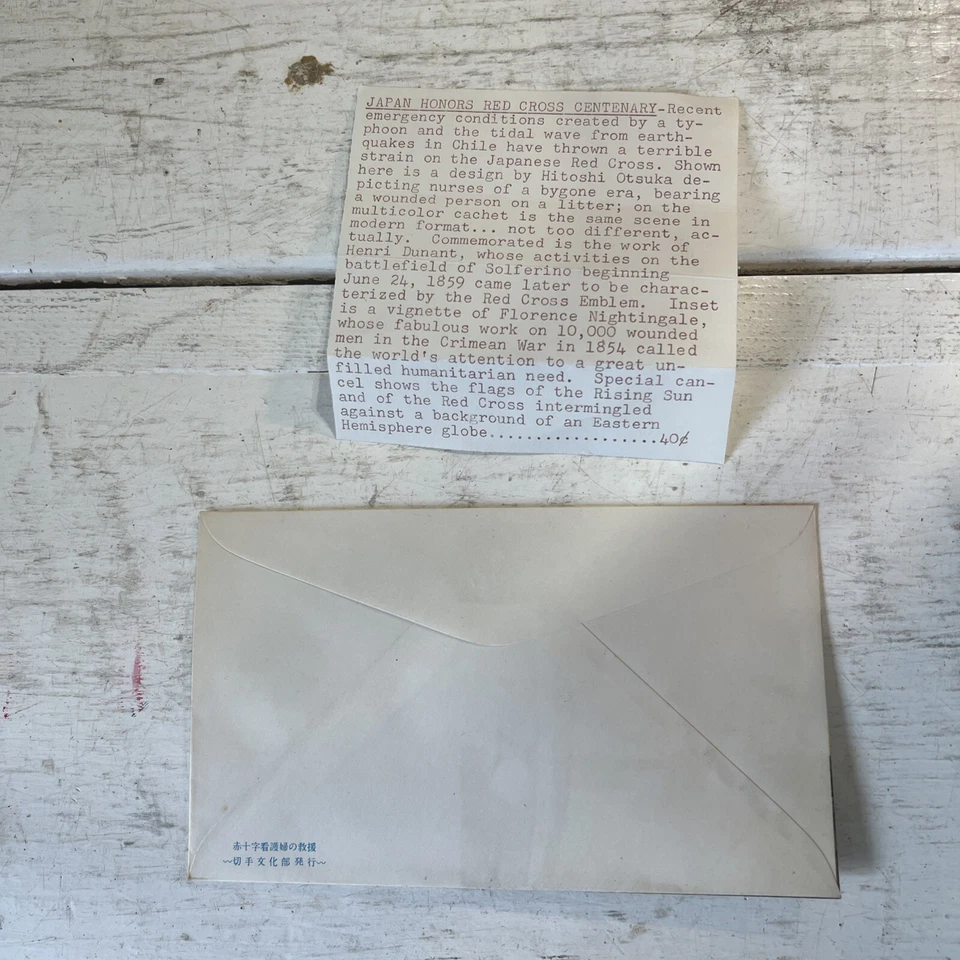 JAPAN HONORS RED CROSS CENTENARY-Recent
emergency conditions created by a ty-
phoon and the tidal wave from earth-
quakes in Chile have thrown a terrible
strain on the Japanese Red Cross. Shown
here is a design by Hitoshi Otsuka de-
picting nurses of a bygone era, bearing
a wounded person on a litter; on the
multicolor cachet is the same scene in
modern format... not too different, ac-
tually. Commemorated is the work of
Henri Dunant, whose activities on the
battlefield of Solferino beginning
June 24, 1859 came later to be charac-
terized by the Red Cross Emblem. Inset
is a vignette of Florence Nightingale,
whose fabulous work on 10,000 wounded
men in the Crimean War in 1854 called
the world's attention to a great un-
filled humanitarian need. Special can-
cel shows the flags of the Rising Sun
and of the Red Cross intermingled
against a background of an Eastern
Hemisphere globe...................40¢
赤十字看護婦の救援
〜切手文化部発行〜